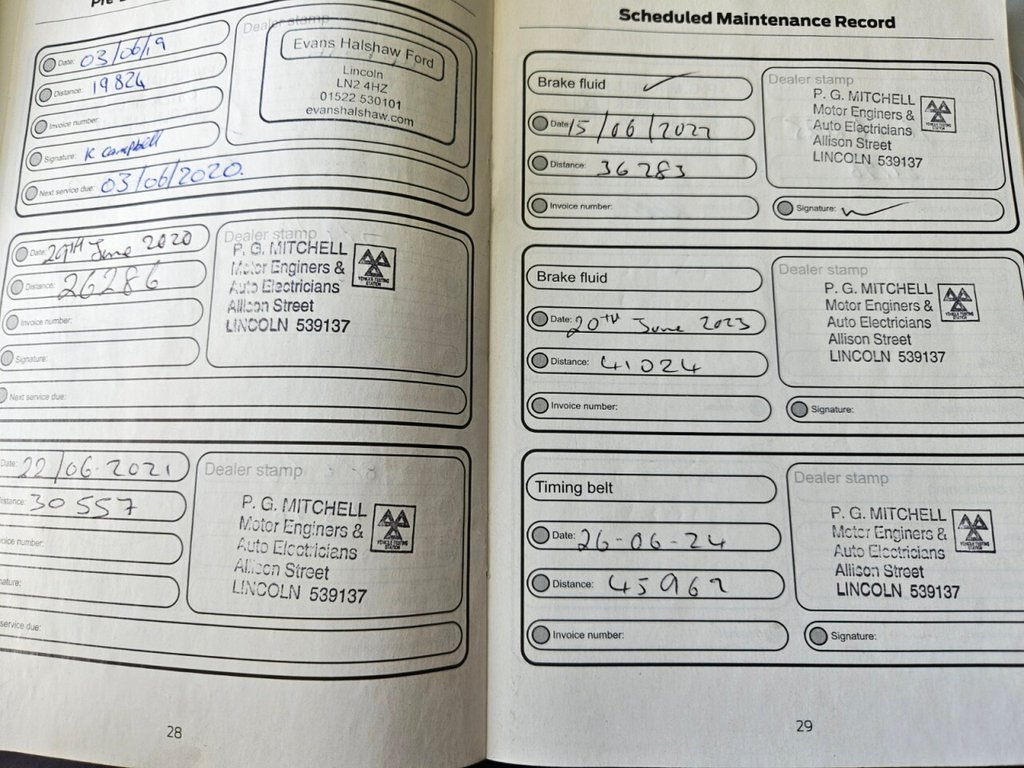 Date: 03/06/19
Distance: 19824
Invoice number:
Signature: K Campbell
Next service due: 03/06/2020.
Dealer stamp
Evans Halshaw Ford
Lincoln
LN2 4HZ
01522 530101
evanshalshaw.com
Date: 29TH June 2020
Distance: 26286
Invoice number:
Signature:
Next service due:
Dealer stamp
P. G. MITCHELL
Motor Enginers &
Auto Electricians
Allison Street
LINCOLN 539137
VEHICLE TESTING
STATION
Date: 22/06-2021
istance: 30557
voice number:
nature:
service due:
Dealer stamp
P. G. MITCHELL
Motor Enginers &
Auto Electricians
Allison Street
LINCOLN 539137
VEHICLE TESTING
STATION
28
Scheduled Maintenance Record
Brake fluid ✓
Date: 15/06/2022
Distance: 36283
Invoice number:
Dealer stamp
P. G. MITCHELL
Motor Enginers &
Auto Electricians
Allison Street
LINCOLN 539137
VEHICLE TESTING
STATION
Signature:
Brake fluid
Date: 20TH June 2023
Distance: 41024
Invoice number:
Dealer stamp
P. G. MITCHELL
Motor Enginers &
Auto Electricians
Allison Street
LINCOLN 539137
VEHICLE TESTING
STATION
Signature:
Timing belt
Date: 26-06-24
Distance: 45962
Invoice number:
Dealer stamp
P. G. MITCHELL
Motor Enginers &
Auto Electricians
Allison Street
LINCOLN 539137
VEHICLE TESTING
STATION
Signature:
29